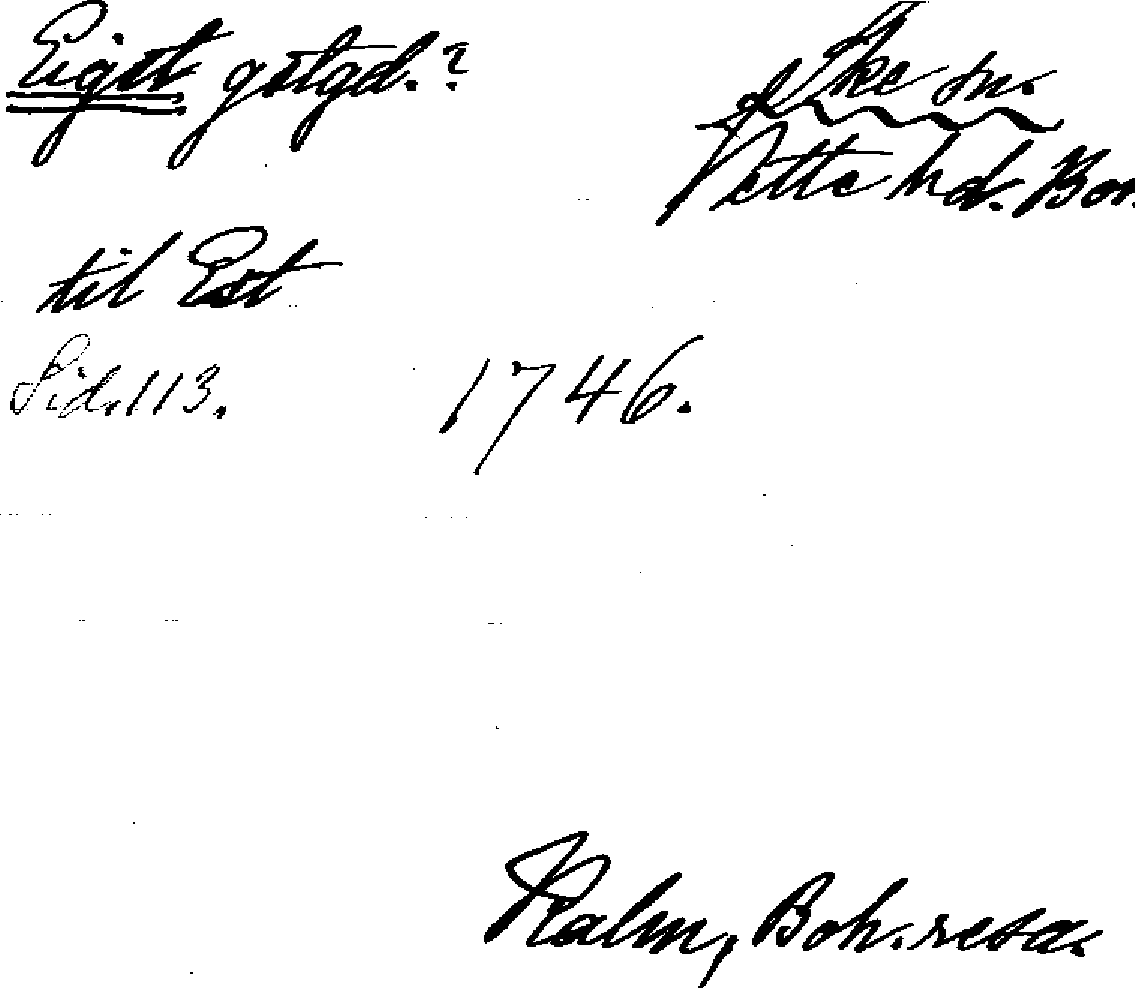 Eigst gstgd.? Ske sn.
Vette hd. Boh.
til Est
Sid. 113. 1746.
Kalm, Boh. resa.